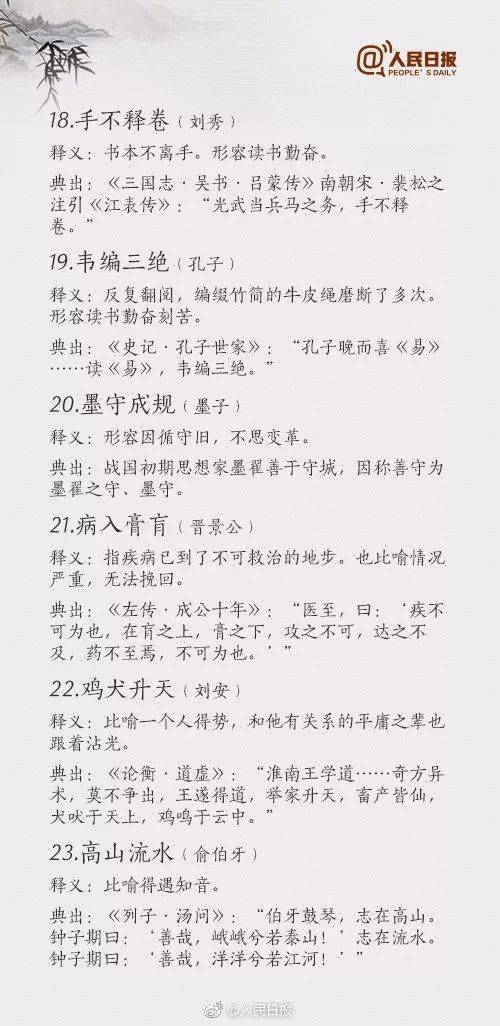 @人民日报
PEOPLE'S DAILY
18.手不释卷（刘秀）
释义：书本不离手。形容读书勤奋。
典出：《三国志·吴书·吕蒙传》南朝宋·裴松之
注引《江表传》：“光武当兵马之务，手不释
卷。”
19.韦编三绝（孔子）
释义：反复翻阅，编缀竹简的牛皮绳磨断了多次。
形容读书勤奋刻苦。
典出：《史记·孔子世家》：“孔子晚而喜《易》
……读《易》，韦编三绝。”
20.墨守成规（墨子）
释义：形容因循守旧，不思变革。
典出：战国初期思想家墨翟善于守城，因称善守为
墨翟之守、墨守。
21.病入膏肓（晋景公）
释义：指疾病已到了不可救治的地步。也比喻情况
严重，无法挽回。
典出：《左传·成公十年》：“医至，曰：‘疾不
可为也，在肓之上，膏之下，攻之不可，达之不
及，药不至焉，不可为也。’”
22.鸡犬升天（刘安）
释义：比喻一个人得势，和他有关系的平庸之辈也
跟着沾光。
典出：《论衡·道虚》：“淮南王学道……奇方异
术，莫不争出，王遂得道，举家升天，畜产皆仙，
犬吠于天上，鸡鸣于云中。”
23.高山流水（俞伯牙）
释义：比喻得遇知音。
典出：《列子·汤问》：“伯牙鼓琴，志在高山。
钟子期曰：‘善哉，峨峨兮若泰山！’志在流水。
钟子期曰：‘善哉，洋洋兮若江河！’”
@人民日报